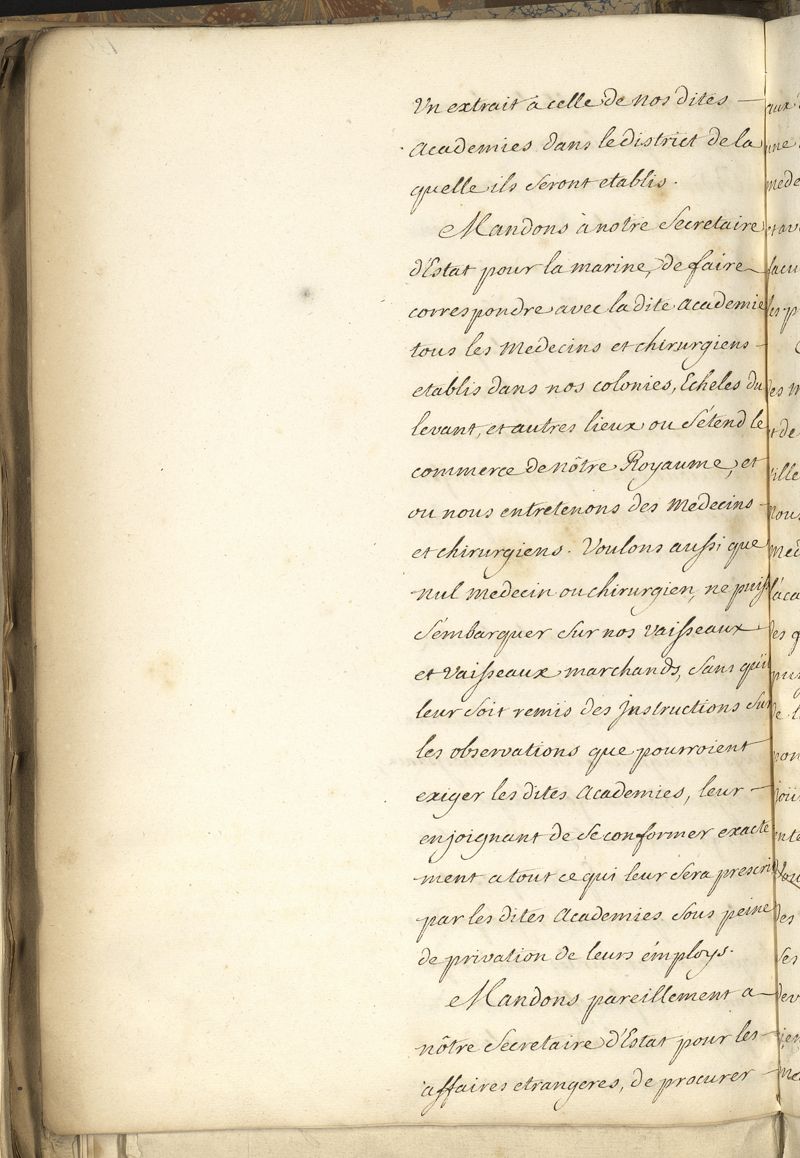 Un extrait à celle de nos dites —
academies dans le district de la
quelle ils seront etablis.
Mandons à notre Secretaire
d'Estat pour la marine, de faire
correspondre avec la dite academie
tous les Medecins et chirurgiens —
etablis dans nos colonies, Echeles du
levant, et autres lieux ou s'étend le
commerce de nôtre Royaume, et
ou nous entretenons des Medecins —
et chirurgiens. Voulons aussi que
nul medecin ou chirurgien, ne puisse
s'embarquer sur nos vaisseaux
et vaisseaux marchands, sans qu'il
leur soit remis des jnstructions sur
les observations que pourroient
exiger les dites academies, leur —
enjoignant de se conformer exacte
ment a tout ce qui leur sera prescrit
par les dites academies sous peine
de privation de leurs émploys.
Mandons pareillement a —
nôtre Secretaire d'Estat pour les —
affaires etrangeres, de procurer —